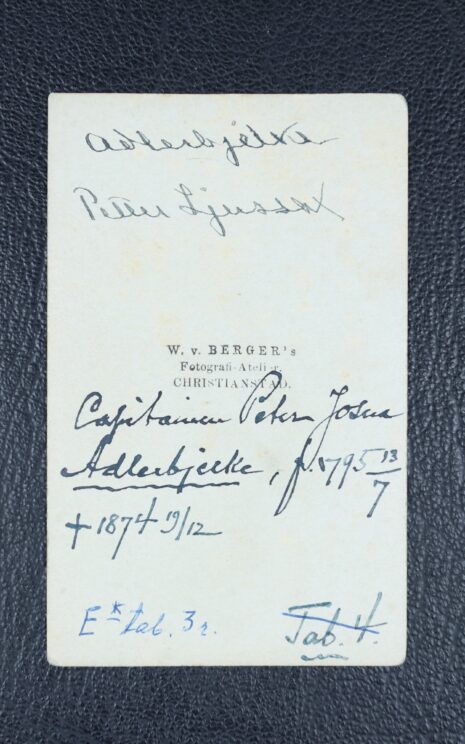 Adlerbjelke
Petter
W. v. BERGER's
Fotografi-Atelier.
CHRISTIANSTAD.
Capitainen Peter Josua
Adlerbjelke, f. 1795 13/7
† 1874 19/12
E* tab. 3r.
Tab. 4.